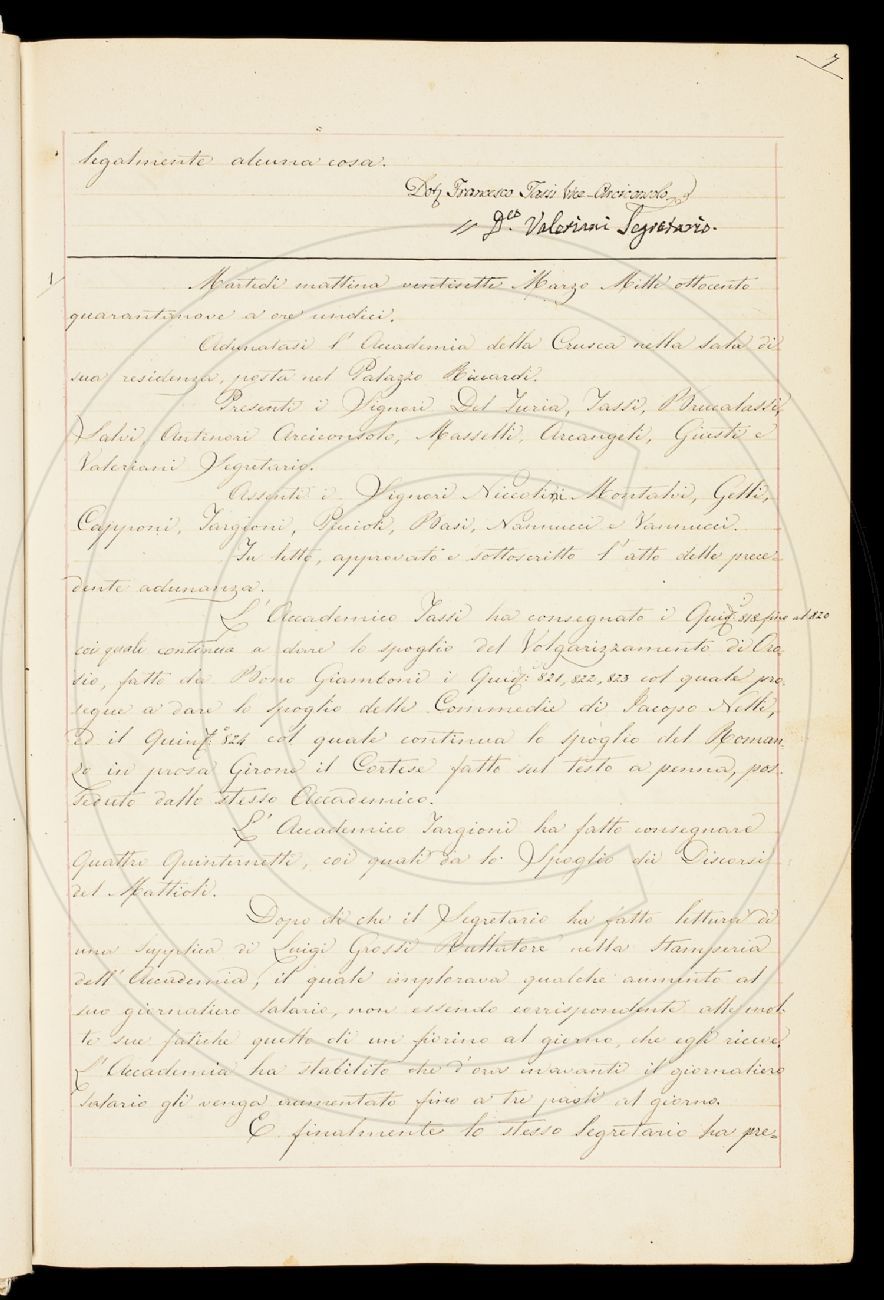 7
legalmente alcuna cosa.
Dott. Francesco Tassi Vice-Arciconsolo
D.co Valeriani Segretario.
Martedì mattina ventisette Marzo Mille ottocento
quarantanove a ore undici.
Adunatasi l'Accademia della Crusca nella sala di
sua residenza, posta nel Palazzo Riccardi.
Presenti i Signori Del Furia, Tassi, Brucalassi,
Salvi, Antinori Arciconsolo, Masselli, Arcangeli, Giusti e
Valeriani Segretario.
Assenti i Signori Niccolini Montalvi, Gelli,
Capponi, Targioni, Puccioli, Basi, Nannucci e Vannucci.
Fu letto, approvato e sottoscritto l'atto delle prece-
dente adunanza.
L'Accademico Tassi ha consegnato i Quint. 818 fino al 820
coi quali continua a dare lo spoglio del Volgarizzamento di Oro-
sio, fatto da Bono Giamboni i Quint. 821, 822, 823 col quale pro-
segue a dare lo spoglio delle Commedie di Jacopo Nelli,
ed il Quint.o 824 col quale continua lo spoglio del Roman-
zo in prosa Girone il Cortese fatto sul testo a penna, pos-
seduto dallo stesso Accademico.
L'Accademico Targioni ha fatto consegnare
quattro Quinternetti, coi quali dà lo Spoglio dei Discorsi
del Mattioli.
Dopo di che il Segretario ha fatto lettura di
una supplica di Luigi Grossi Battitore nella stamperia
dell'Accademia, il quale implorava qualche aumento al
suo giornaliero salario, non essendo corrispondente alle mol-
te sue fatiche quello di un fiorino al giorno, che egli riceve.
L'Accademia ha stabilito che d'ora inavanti il giornaliero
salario gli venga aumentato fino a tre paoli al giorno.
E finalmente lo stesso Segretario ha pre-